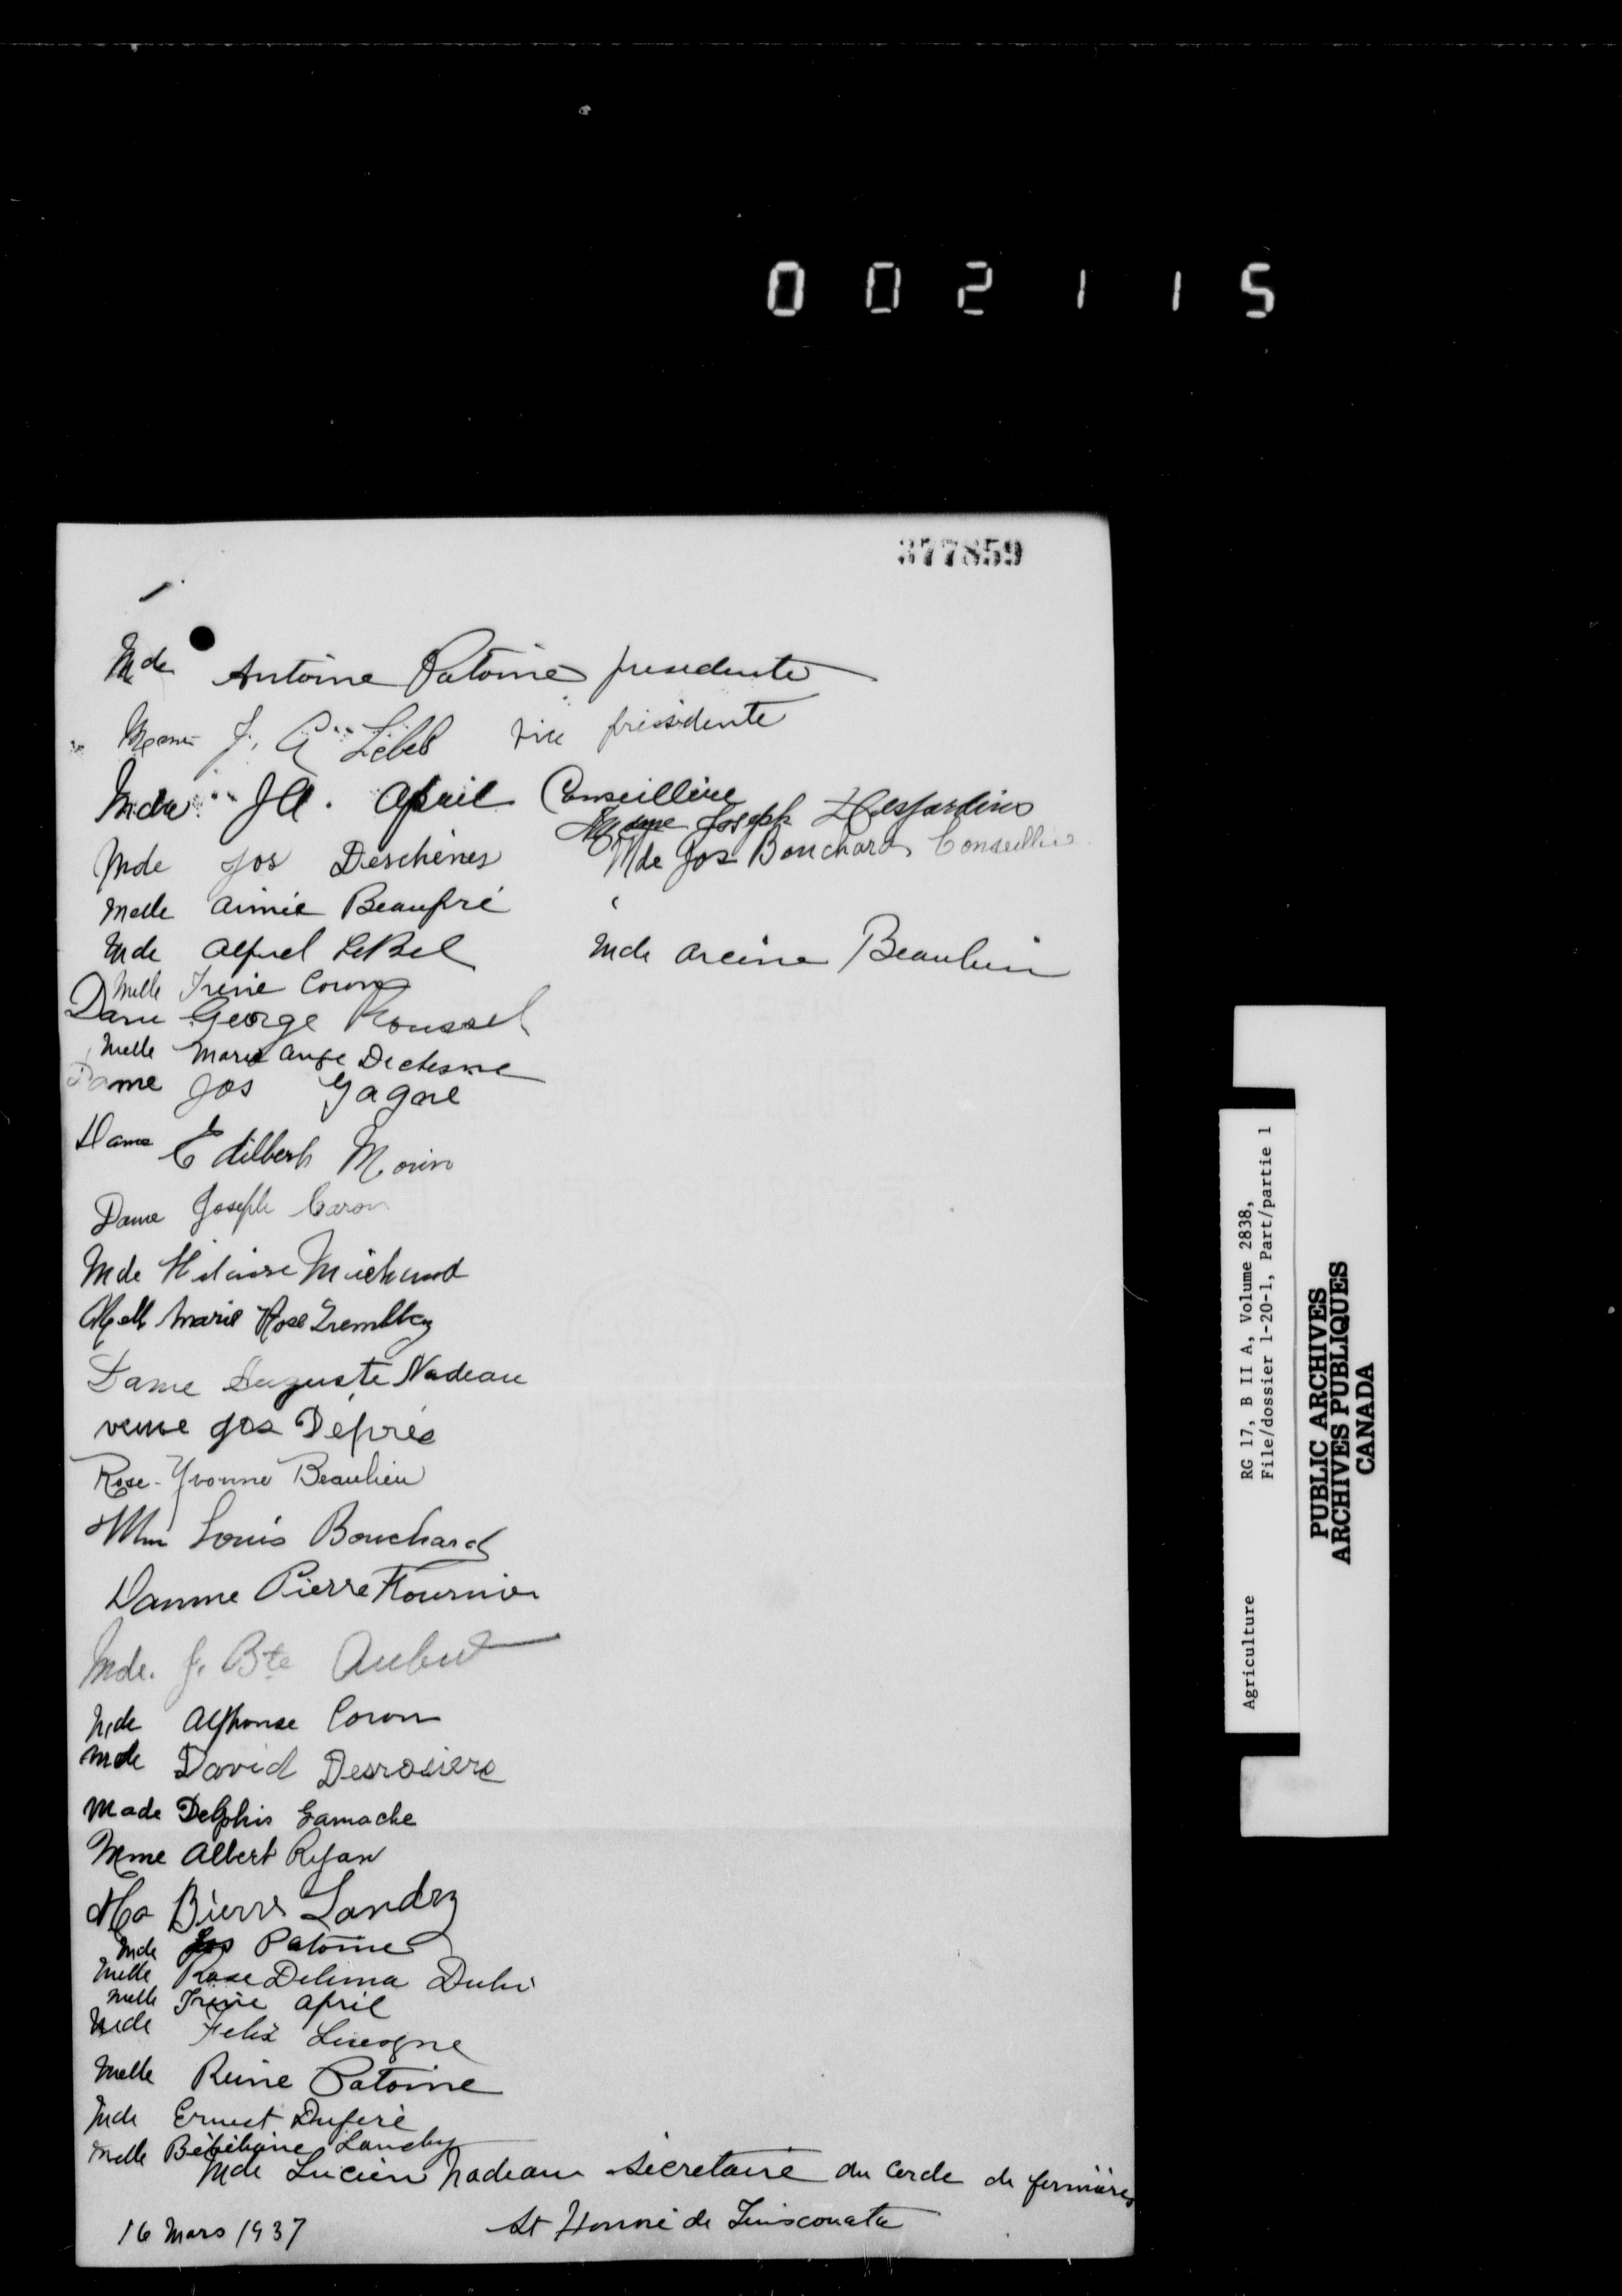 002115
377859
Mde Antoine Patoine presidente
Mme J. A Lebel vice présidente
Mde J A. April Conseillère
Mme Joseph Desjardins
Mde Jos Deschènes
Mde Jos Bouchard Conseillère
Melle Aimée Beaupré
Mde Alfred LeBel
Mde Arcène Beaulieu
Melle Irène Caron
Dame George Roussel
Melle Marie Ange Dechesne
Dame Jos Gagné
Dame Edilbert Morin
Dame Joseph Caron
Mde Hilaire Michaud
Mell Marie Rose Tremblay
Dame Auguste Nadeau
veuve Jos Déprés
Rose-Yvonne Beaulieu
Mm Louis Bouchard
Damme Pierre Fournier
Mde. J. Bte Aubut
Mde Alphonse Caron
Mde David Desrosiers
Made Delphis Gamache
Mme Albert Ryan
Pierre Landry
Mde Jos Patoine
Melle Rose Delima Dubé
Melle Irène April
Mde Felix
Melle Reine Patoine
Mde Ernest Duperé
Melle Landry
Mde Lucien Nadeau Secretaire du Cercle de fermières
16 Mars 1937 St Honoré de Témiscouata
Agriculture RG 17, B II A, Volume 2838,
File/dossier 1-20-1, Part/partie 1
PUBLIC ARCHIVES
ARCHIVES PUBLIQUES
CANADA